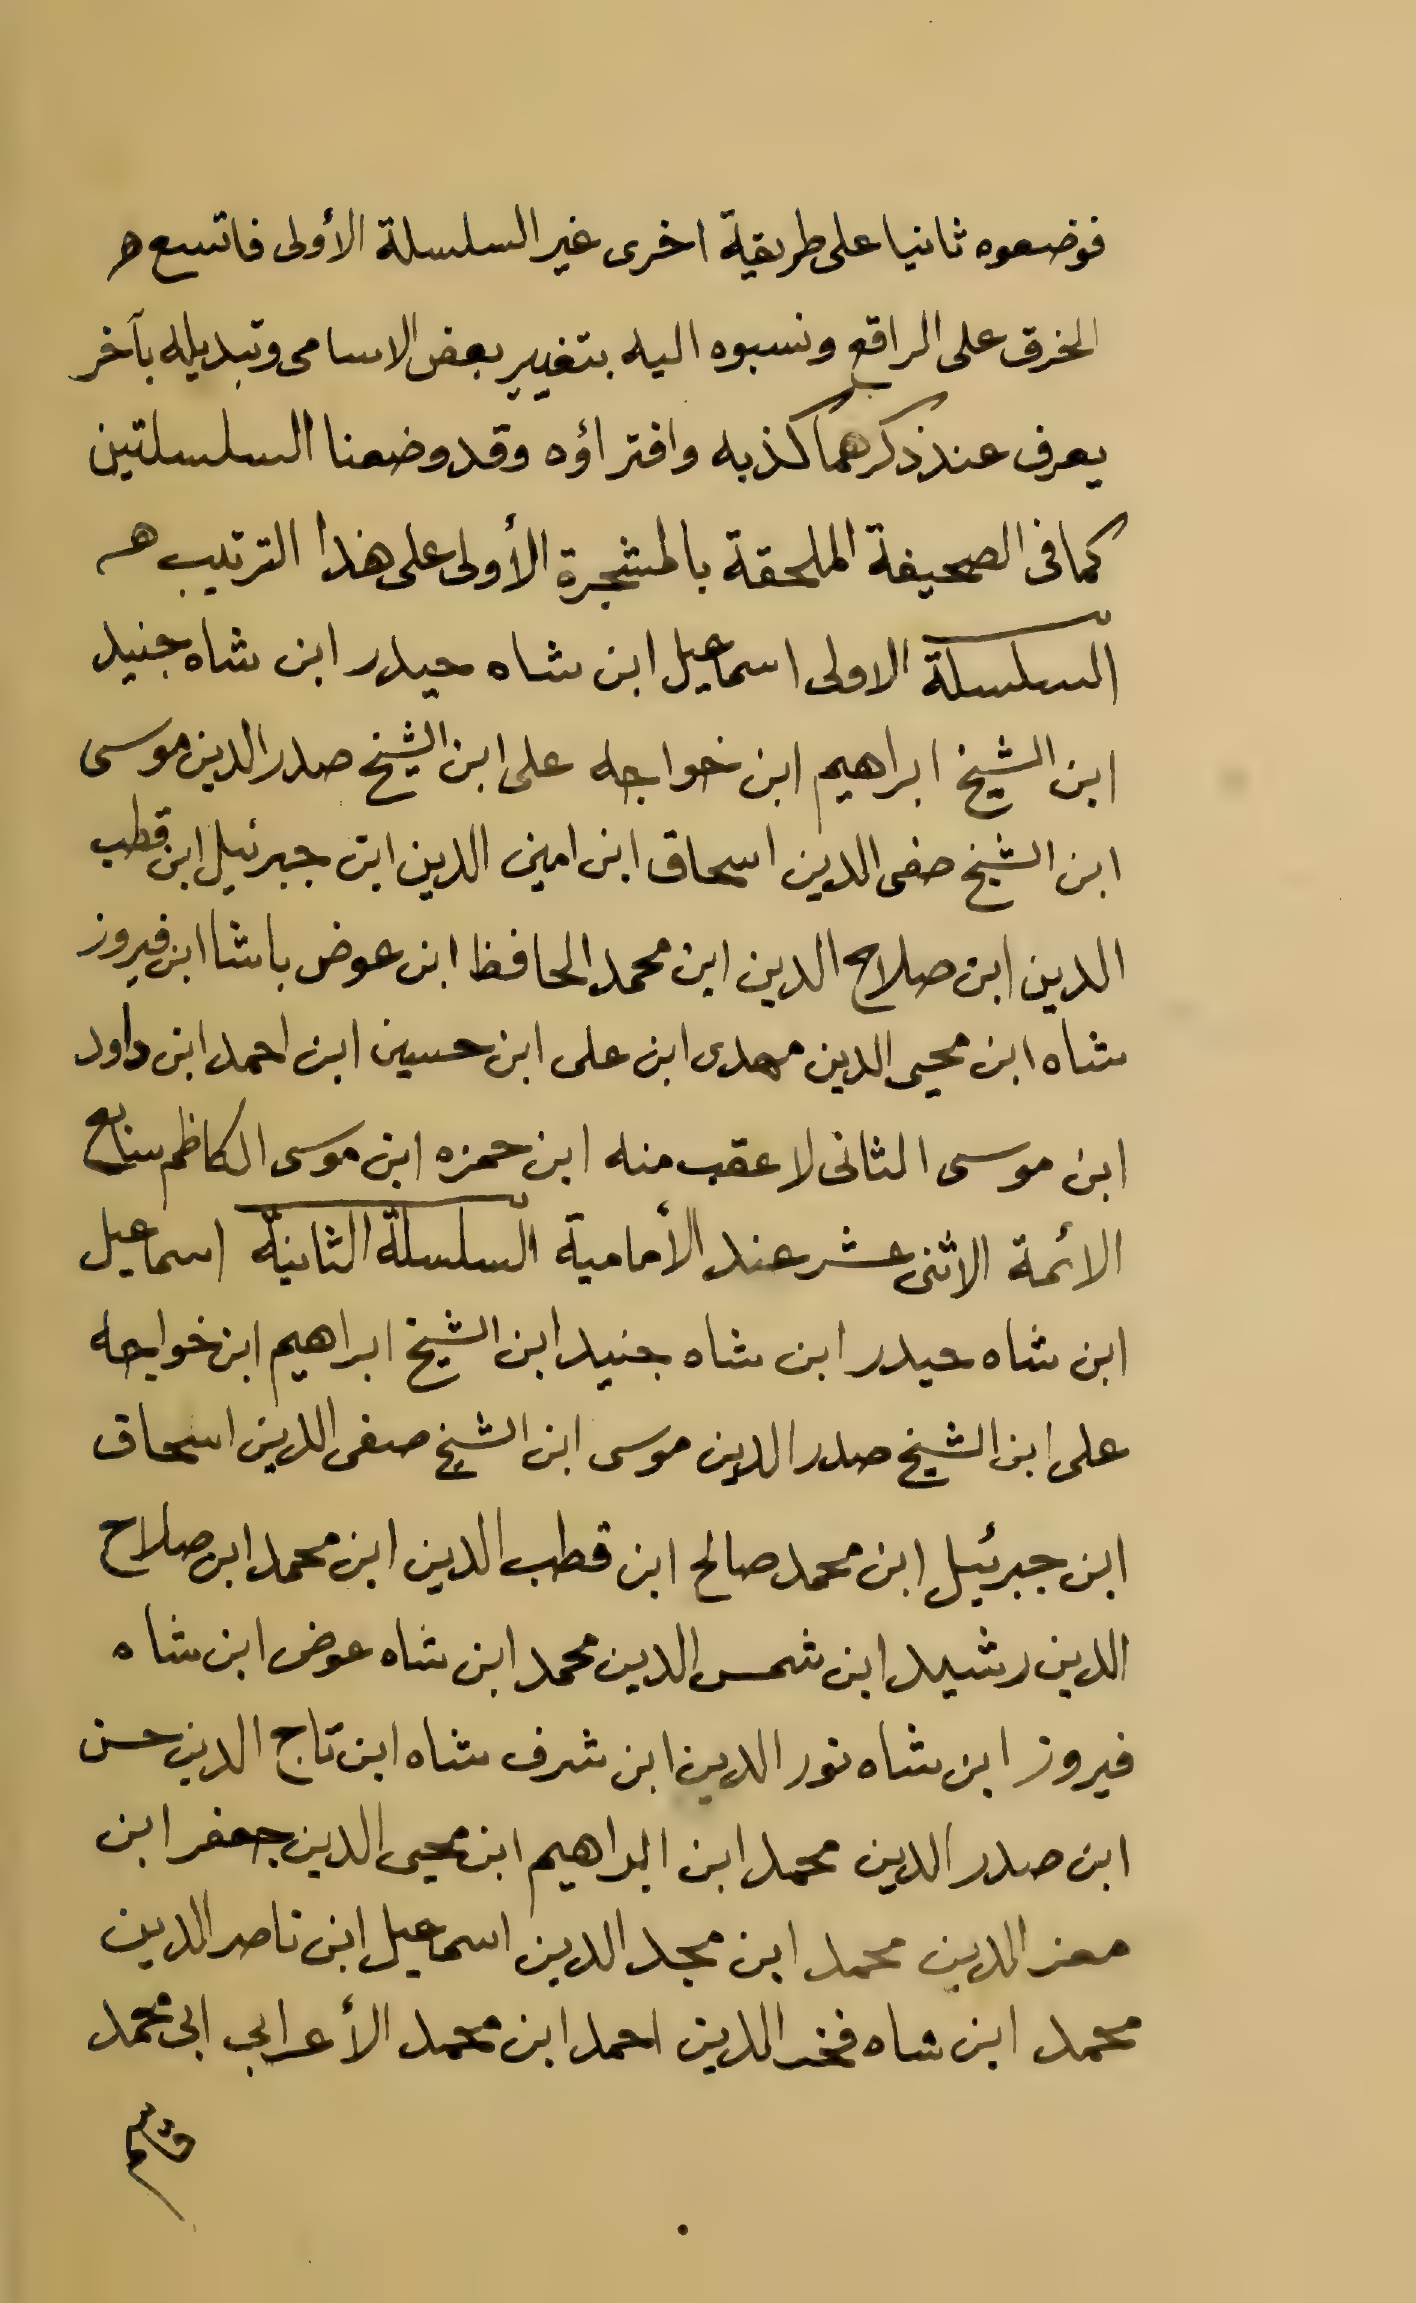 فوضعوه ثانيا على طريقة اخرى غير السلسلة الأولى فاتسع ه
الخرق على الراقع ونسبوه اليه بتغيير بعض الاسامى وتبديله بآخر
يعرف عند ذكرهما كذبه وافتراؤه وقد وضعنا السلسلتين
كما فى الصحيفة الملحقة بالمشجرة الأولى على هذا الترتيب هـ
السلسلة الاولى اسماعيل ابن شاه حيدر ابن شاه جنيد
ابن الشيخ ابراهيم ابن خواجه على ابن الشيخ صدر الدين موسى
ابن الشيخ صفى الدين اسحاق ابن امين الدين ابن جبرئيل ابن قطب
الدين ابن صلاح الدين ابن محمد الحافظ ابن عوض باشا ابن فيروز
شاه ابن محيى الدين مهدى ابن على ابن حسين ابن احمد ابن داود
ابن موسى الثانى لا عقب منه ابن حمزه ابن موسى الكاظم سابع
الائمة الاثنى عشر عند الأمامية السلسلة الثانية اسماعيل
ابن شاه حيدر ابن شاه جنيد ابن الشيخ ابراهيم ابن خواجه
على ابن الشيخ صدر الدين موسى ابن الشيخ صفى الدين اسحاق
ابن جبرئيل ابن محمد صالح ابن قطب الدين ابن محمد ابن صلاح
الدين رشيد ابن شمس الدين محمد ابن شاه عوض ابن شاه
فيروز ابن شاه نور الدين ابن شرف شاه ابن تاج الدين حسن
ابن صدر الدين محمد ابن ابراهيم ابن محيى الدين جعفر ابن
معز الدين محمد ابن مجد الدين اسماعيل ابن ناصر الدين
محمد ابن شاه فخر الدين احمد ابن محمد الأعرابى ابى محمد
قاسم